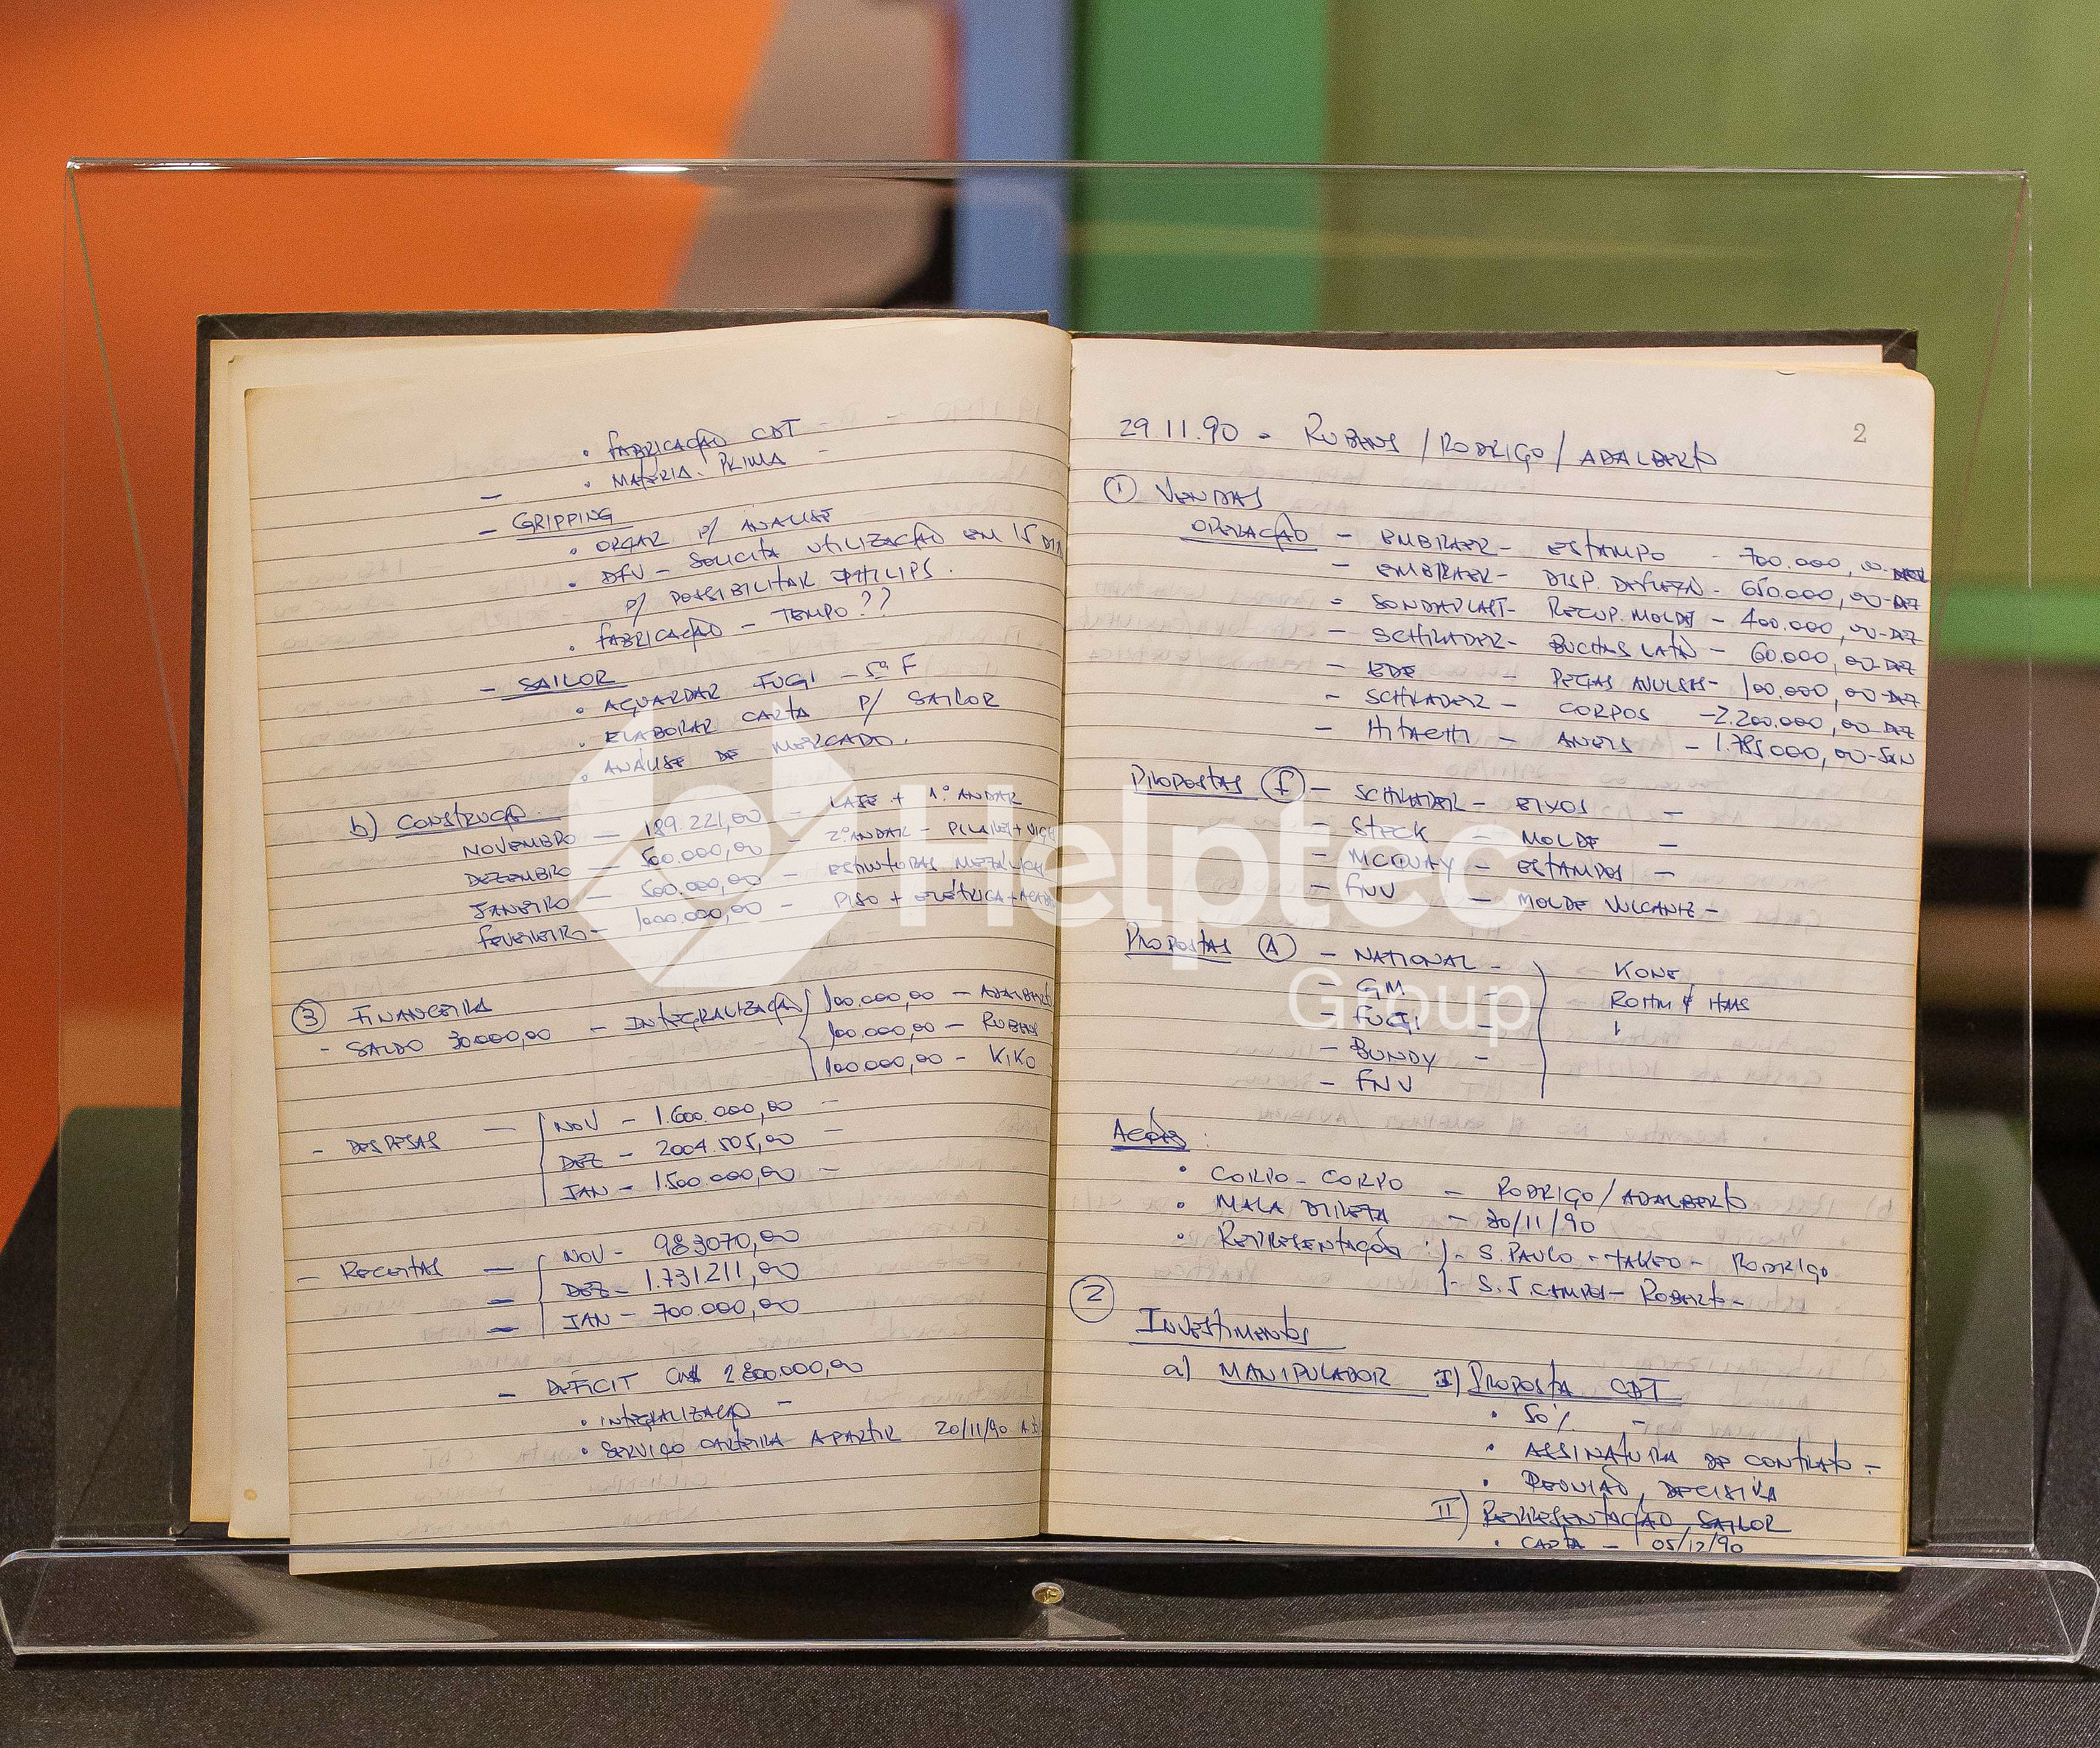 • FABRICAÇÃO CDT -
- • MATÉRIA-PRIMA -
- GRIPPING
• ORÇAR P/ ANALISE
• DFV - SOLICITA UTILIZAÇÃO EM 15 DIA
P/ POSSIBILITAR PHILIPS.
• FABRICAÇÃO - TEMPO??
- SAILOR
• AGUARDAR FUGI - 5ª F
• ELABORAR CARTA P/ SAILOR
• ANÁLISE DE MERCADO.
b) CONSTRUÇÃO
NOVEMBRO — 189.221,00 - LAJE + 1º ANDAR
DEZEMBRO — 500.000,00 - 2º ANDAR - PILARES + VIGA
JANEIRO — 500.000,00 - ESTRUTURAS METÁLICA
FEVEREIRO — 1000.000,00 - PISO + ELÉTRICA +
③ FINANCEIRA
- SALDO 30.000,00 - INTEGRALIZAÇÃO { 100.000,00 - ADALBERTO
100.000,00 - RUBENS
100.000,00 - KIKO
- DESPESAS — { NOV - 1.600.000,00 -
DEZ - 2004.505,00 -
JAN - 1.500.000,00 -
- RECEITAS — { NOV - 983070,00
- DEZ - 1.731211,00
- JAN - 700.000,00
- DÉFICIT CR$ 2.800.000,00
• INTEGRALIZAÇÃO -
• SERVIÇO CARTEIRA APARTIR 20/11/90
2
29.11.90 - RUBENS / RODRIGO / ADALBERTO
① VENDAS
OPERAÇÃO - EMBRAER - ESTAMPO - 700.000,00-DEZ
- EMBRAER - DISP. - 650.000,00-DEZ
- SONDAPLAST - RECUP. MOLDE - 400.000,00-DEZ
- SCHRADER - BUCHAS LATÃO - 60.000,00-DEZ
- EDE - PEÇAS AVULSAS - 100.000,00-DEZ
- SCHRADER - CORPOS - 2.200.000,00-DEZ
- HITACHI - ANEIS - 1.785.000,00-JAN
PROPOSTAS (F) - SCHRADER - EIXOS -
- STECK - MOLDE -
- MCQUAY - ESTAMPOS -
- FNV - MOLDE VULCANIZ -
PROPOSTAS (A) - NATIONAL - KONE
- GM ROHM & HAAS
- FUGI -
- BUNDY -
- FNV
AÇÕES:
• CORPO-CORPO - RODRIGO/ADALBERTO
• MALA DIRETA - 30/11/90
• REPRESENTAÇÃO - S. PAULO - TAKEO - RODRIGO
- S.J. CAMPOS - ROBERTO -
② INVESTIMENTOS
a) MANIPULADOR I) PROPOSTA CDT
• 50% -
• ASSINATURA DE CONTRATO -
• REUNIÃO DECISIVA
II) REPRESENTAÇÃO SAILOR
• CARTA - 05/12/90
Helptec
Group